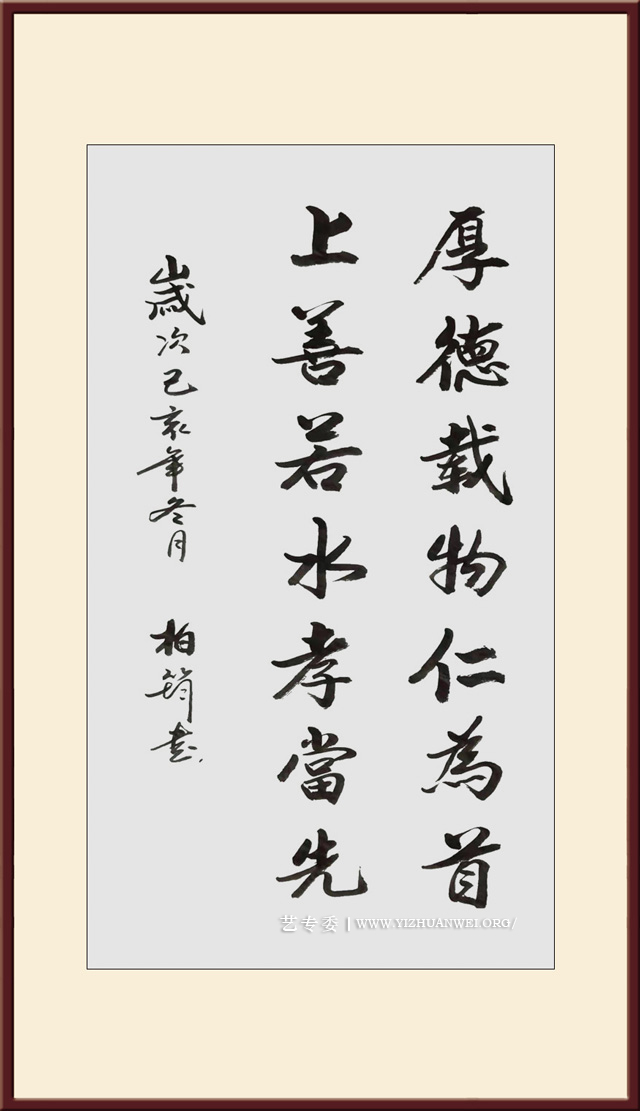 厚德載物仁為首
上善若水孝當先
歲次己亥年冬月 柏筠書
艺专委 | WWW.YIZHUANWEI.ORG/